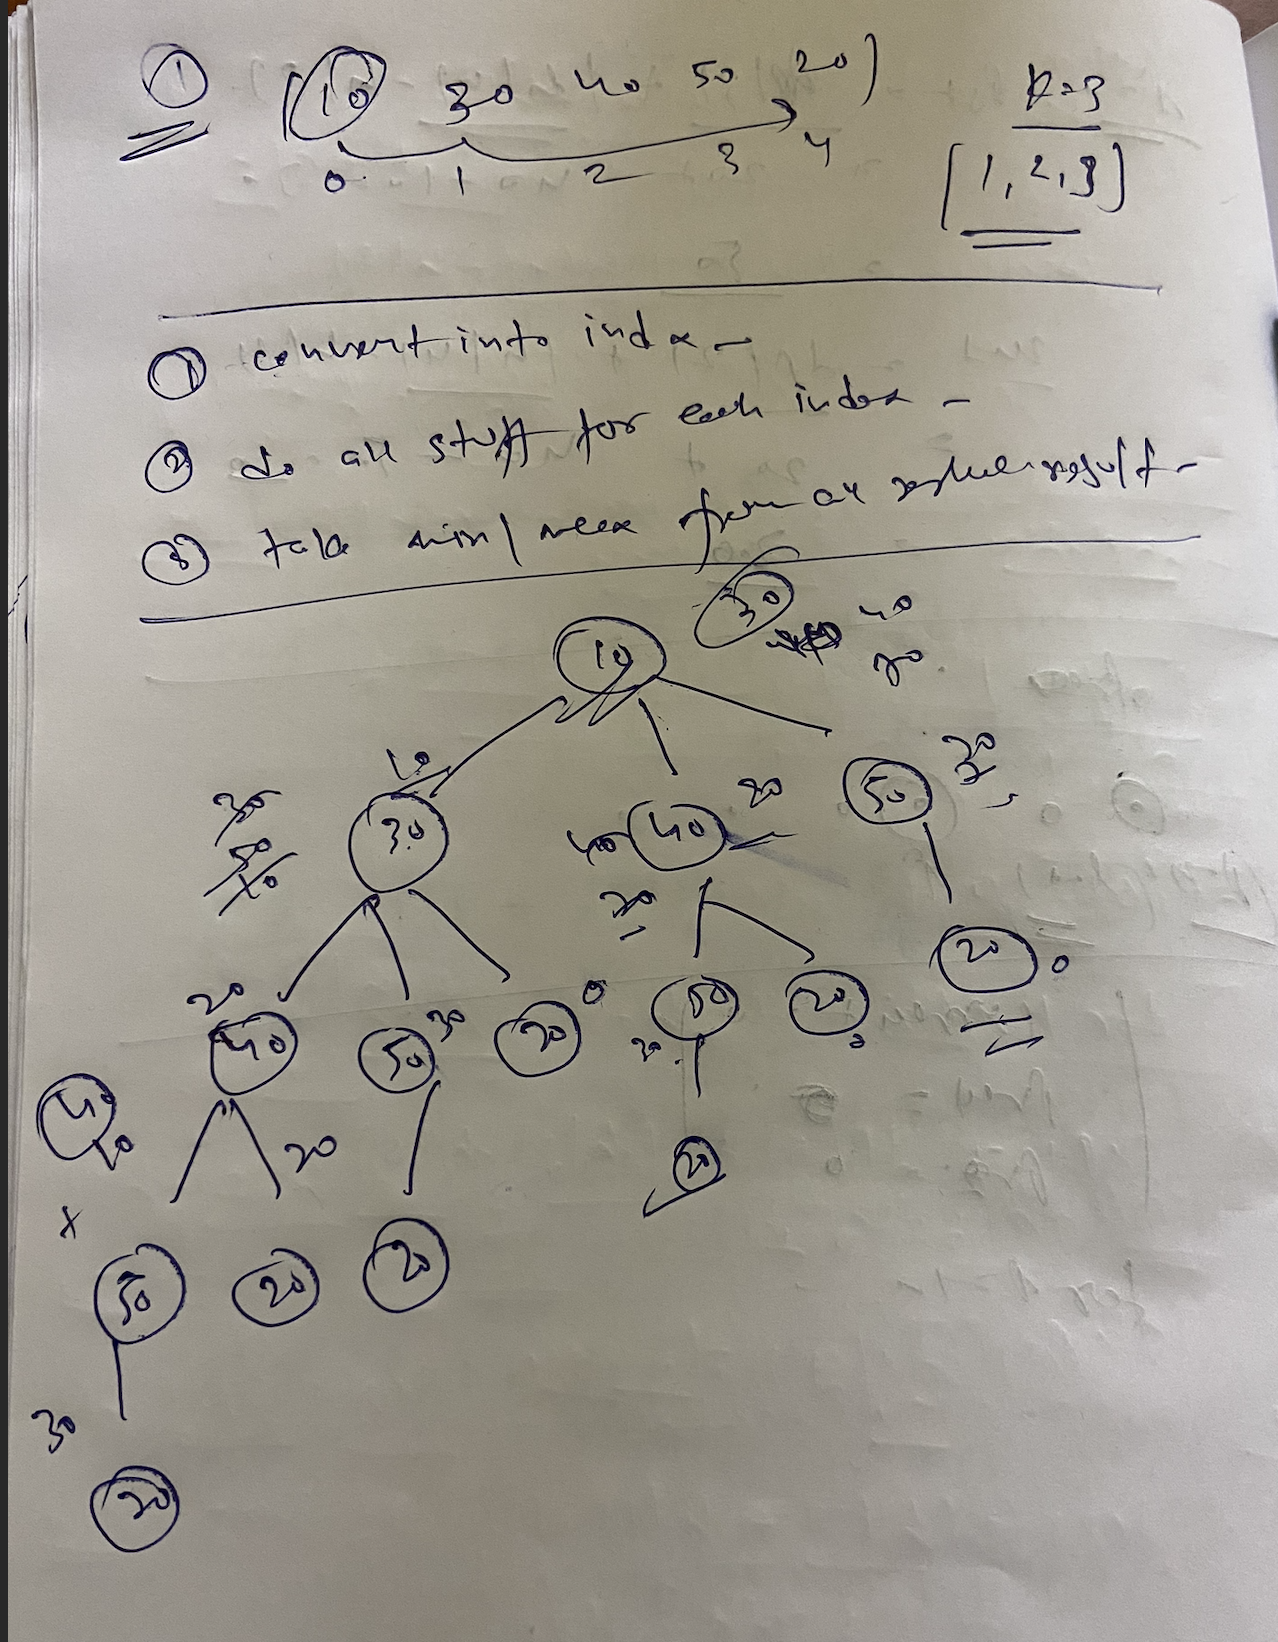 ① (10 30 40 50 20) k=3
0 1 2 3 4 [1,2,3]
① convert into index -
② do all stuff for each index -
③ take min/max from all result -
10 30 40
20
10
30 40 20 50 30
40 30
20 20 0
40 50 20 0 50 20 20 0
30
40 20
20 20
x
50 20 20
30
20